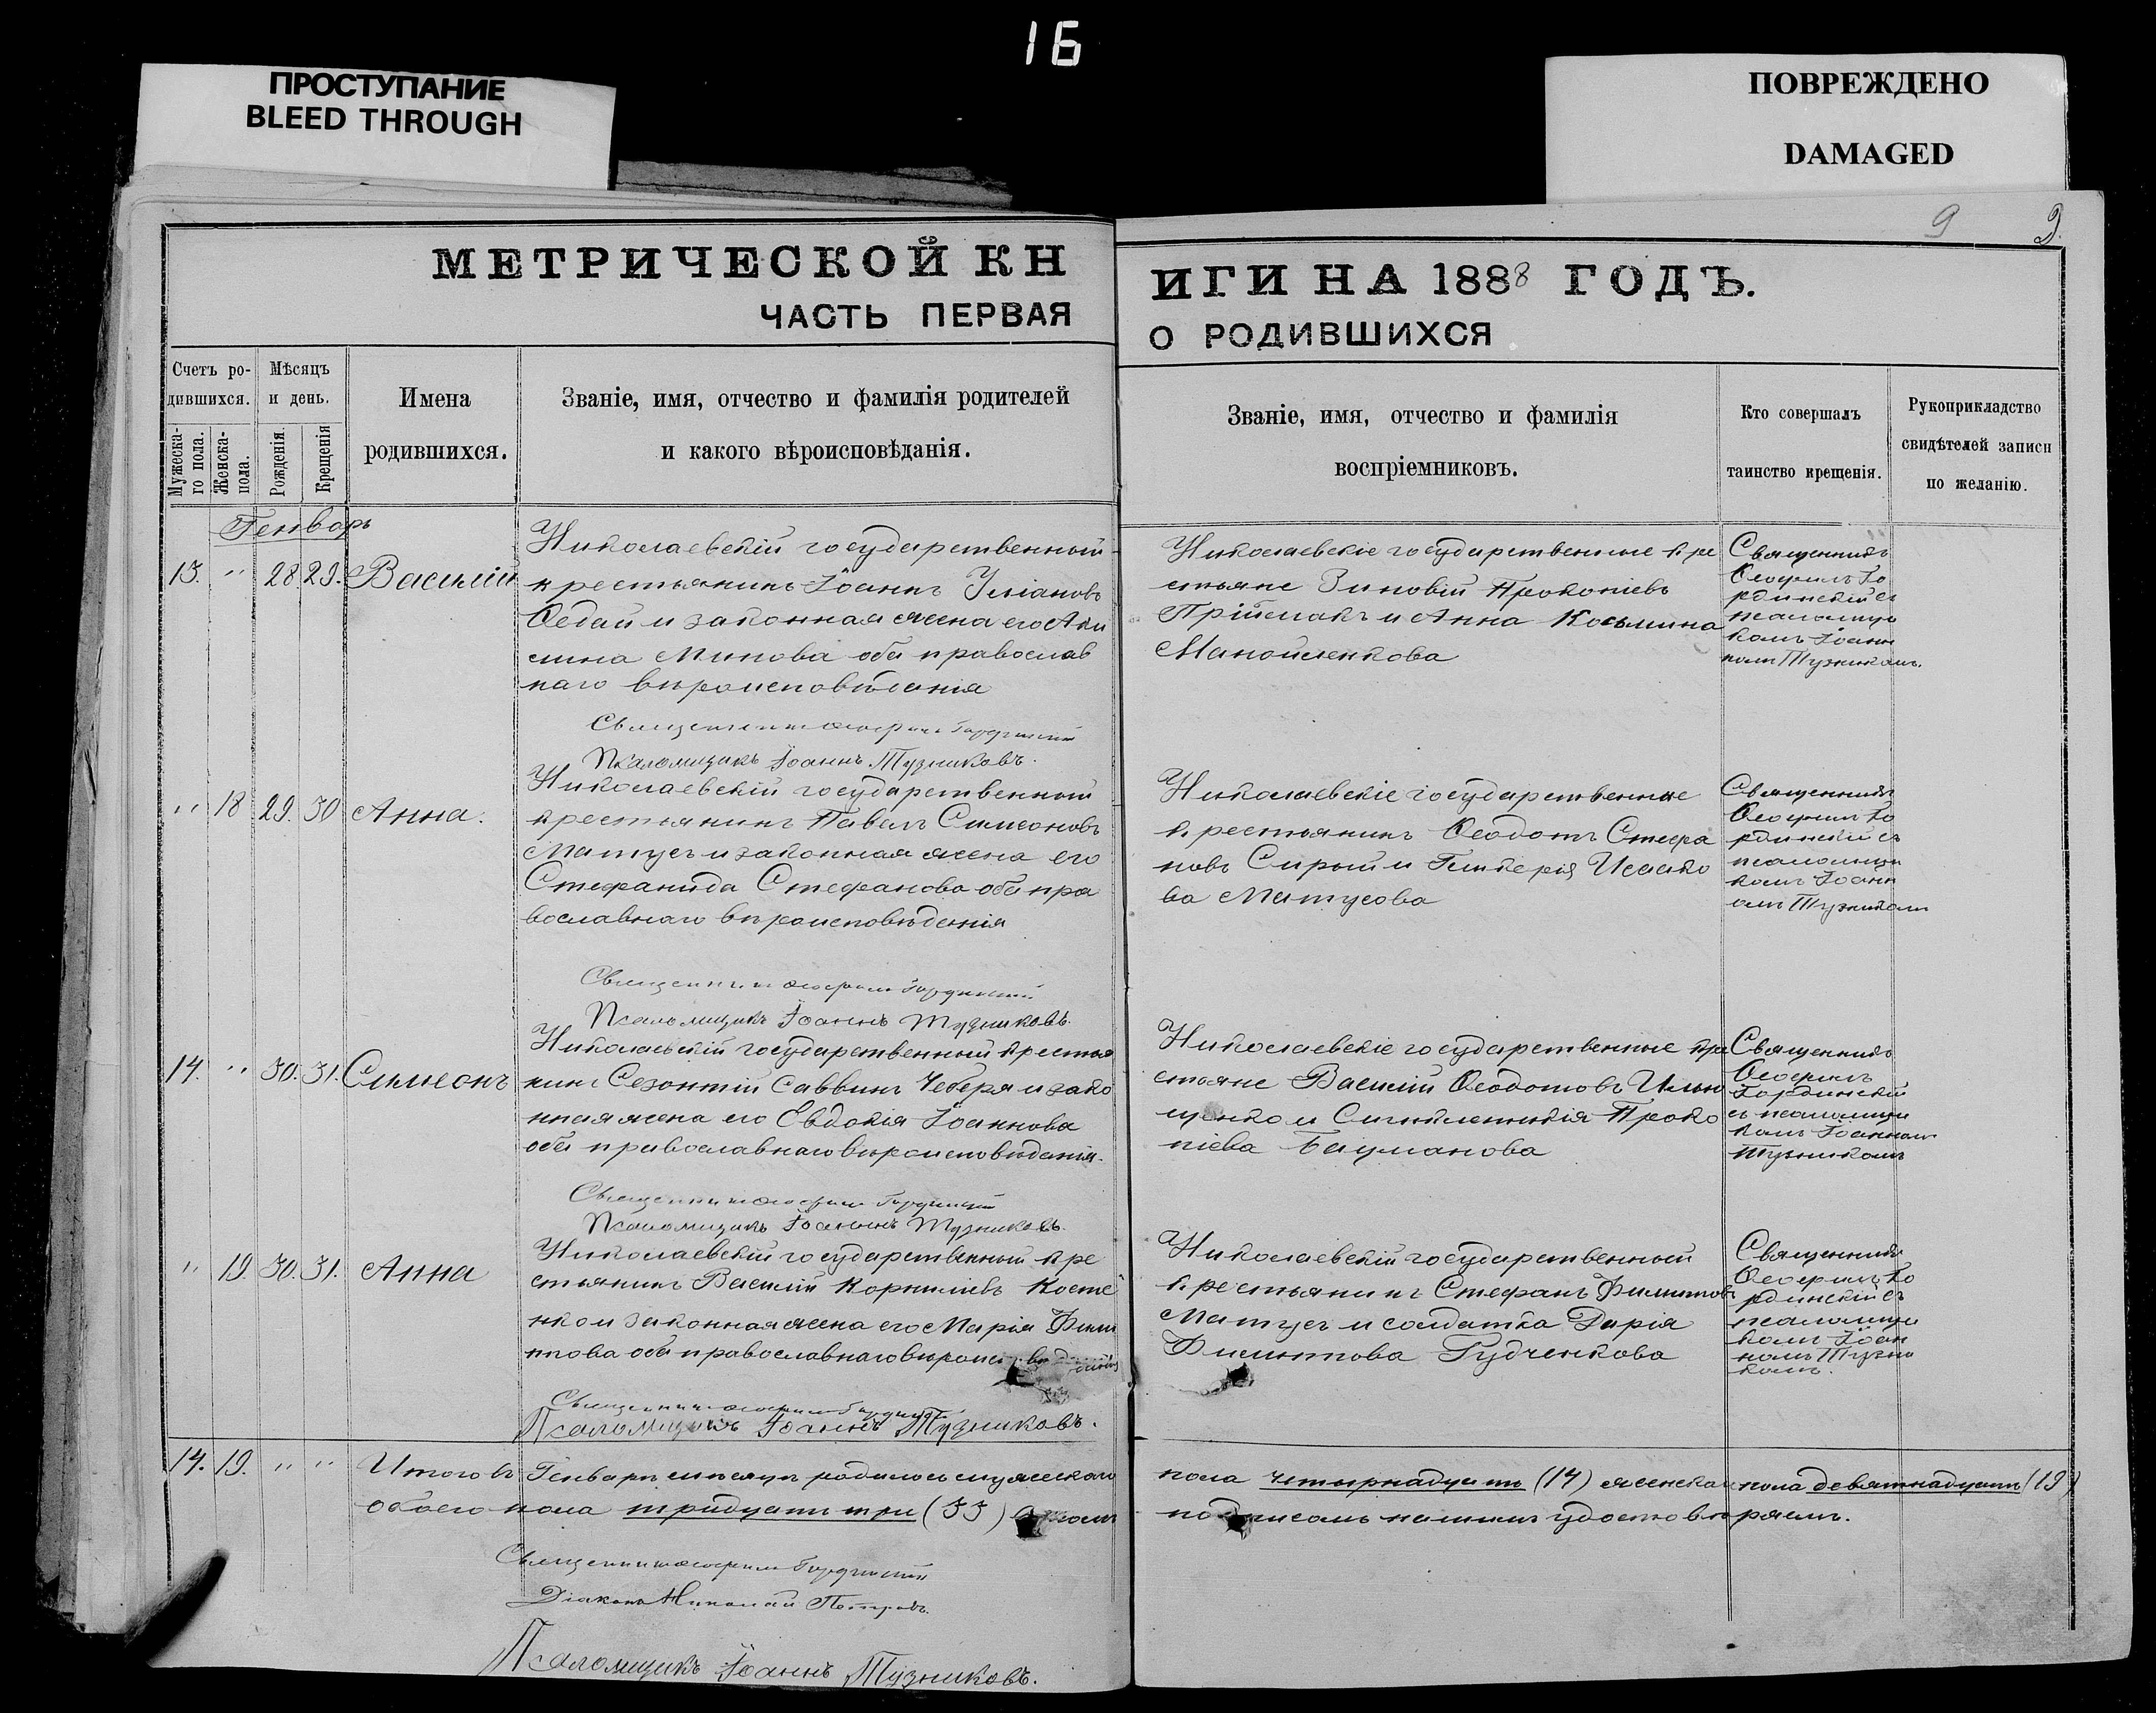 16
ПРОСТУПАНИЕ
BLEED THROUGH
ПОВРЕЖДЕНО
DAMAGED
9 9.
МЕТРИЧЕСКОЙ КН
ИГИ НА 1888 ГОДЪ.
ЧАСТЬ ПЕРВАЯ
О РОДИВШИХСЯ
Счетъ ро-
дившихся.
Мужеска-
го пола.
Женска-
пола.
Мѣсяцъ
и день.
Рожденія.
Крещенія
Имена
родившихся.
Званіе, имя, отчество и фамилія родителей
и какого вѣроисповѣданія.
Званіе, имя, отчество и фамилія
воспріемниковъ.
Кто совершалъ
таинство крещенія.
Рукоприкладство
свидѣтелей записи
по желанію.
Генворь
13. " 28. 29. Василій
Николаевскій государственный
крестьянинъ Іоаннъ Уліановъ
Седай и законная жена его Аки
лина Минова оба православ
наго вѣроисповѣданія
Священникъ Ѳеофилъ Гординскій
Псаломщикъ Іоаннъ Тузниковъ.
Николаевскіе государственные кре
стьяне Зиновій Прокопіевъ
Пріймакъ и Анна Косьмина
Манойленкова
Священникъ
Ѳеофилъ Го
рдинскій съ
псаломщи
комъ Іоан
номъ Тузникомъ.
" 18 29. 30 Анна.
Николаевскій государственный
крестьянинъ Павелъ Симеоновъ
Матусъ и законная жена его
Стефанида Стефанова оба пра
вославнаго вѣроисповѣденія
Священникъ Ѳеофилъ Гординскій
Псаломщикъ Іоаннъ Тузниковъ.
Николаевскіе государственные
крестьянинъ Ѳеодотъ Стефа
новъ Сирый и Гликерія Исаако
ва Матусова
Священникъ
Ѳеофилъ Го
рдинскій съ
псаломщи
комъ Іоанн
омъ Тузникомъ
14. " 30. 31. Симеонъ
Николаевскій государственный крестья
нинъ Созонтій Саввинъ Чеберя и зако
нная жена его Евдокія Іоаннова
оба православнаго вѣроисповѣданія.
Священникъ Ѳеофилъ Гординскій
Псаломщикъ Іоаннъ Тузниковъ.
Николаевскіе государственные кре
стьяне Василій Ѳеодотовъ Илью
щенко и Сигклитикія Проко
піева Бауманова
Священникъ
Ѳеофилъ
Гординскій
съ псаломщи
комъ Іоанномъ
Тузникомъ
" 19. 30. 31. Анна
Николаевскій государственный кре
стьянинъ Василій Корниліевъ Косте
нко и законная жена его Марія Фили
ппова оба православнаго вѣроисповѣданія
Священникъ Ѳеофилъ Гординскій
Псаломщикъ Іоаннъ Тузниковъ.
Николаевскій государственный
крестьянинъ Стефанъ Филиповъ
Матусъ и солдатка Дарія
Филиппова Гудченкова
Священникъ
Ѳеофилъ Го
рдинскій съ
псаломщи
комъ Іоан
номъ Тузни
комъ.
14. 19. " " Итого въ Генварѣ мѣсяцѣ родилось мужескаго
пола четырнадцать (14) женскаго пола девятнадцать (19)
обоего пола тридцать три (33)
подписомъ нашимъ удостовѣряемъ.
Священникъ Ѳеофилъ Гординскій
Діаконъ Николай Петровъ.
Псаломщикъ Іоаннъ Тузниковъ.